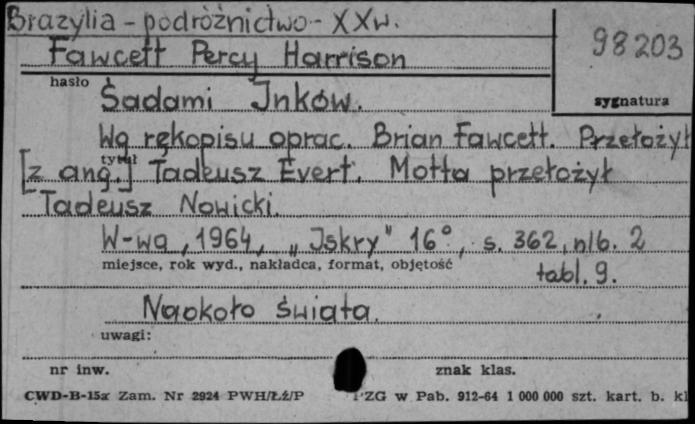 Brazylia - podróżnictwo - XXw.
98203
Fawcett Percy Harrison
hasło
sygnatura
Śadami Inków.
Wg rękopisu oprac. Brian Fawcett. Przełożył
tytuł
[z ang.] Tadeusz Evert. Motta przełożył
Tadeusz Nowicki.
W-wa, 1964, „Iskry" 16°, s. 362, nlb. 2
miejsce, rok wyd., nakładca, format, objętość
tabl. 9.
Naokoło świata.
uwagi:
nr inw.
znak klas.
CWD-B-15a Zam. Nr 2924 PWH/Łź/P
PZG w Pab. 912-64 1 000 000 szt. kart. b. kl